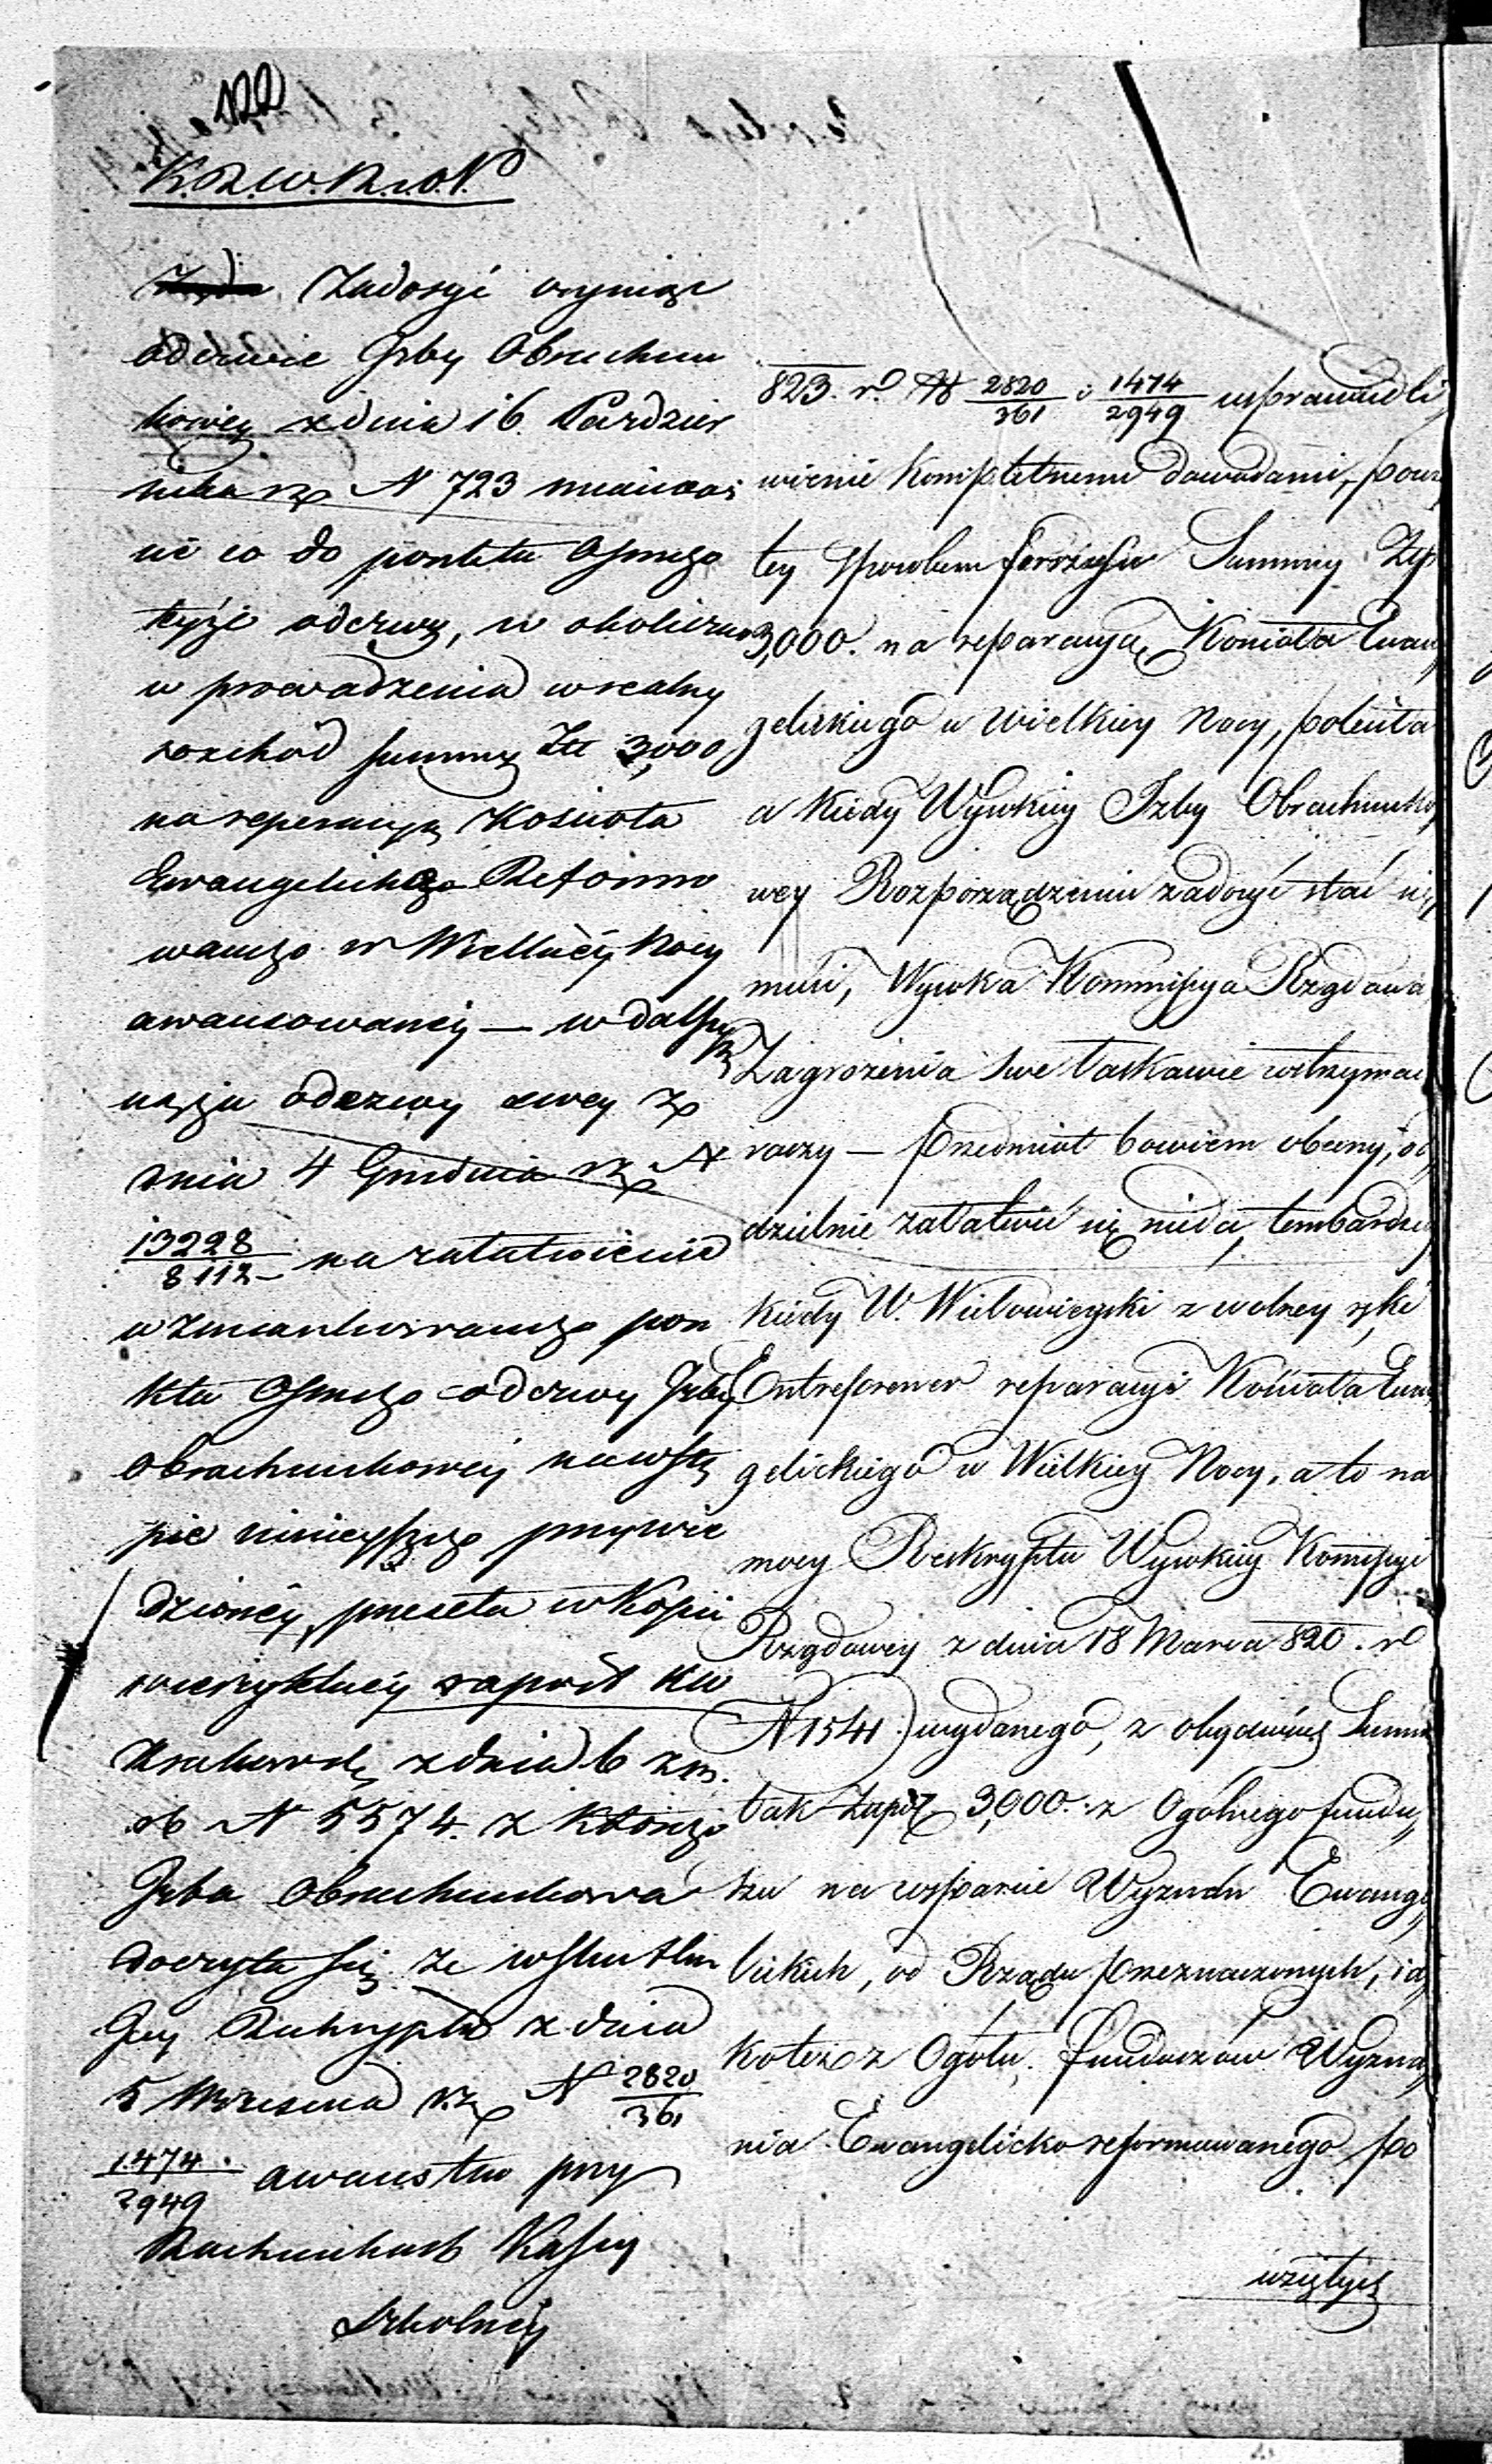 122
K.R.W.R.i.O.P
Zadosyć czyniąc
odezwie Izby Obrachun
kowey z dnia 16. Paździer
nika rp N 723 mianowi
cie co do punktu Osmego
teyże odezwy, w okoliczno
w prowadzenia w realny
rozchód summy Złł 3,000
na reperacyą Kościoła
Ewangelickgo Reformo
wanego w Wielkiéy Nocy
awansowanéy — w dalszym
ciągu odezwy swey z
dnia 4 Grudnia rz N
13228/8112 na załatwienie
wzmiankowanego pun
ktu Osmego odezwy Izby
Obrachunkowéy na wstę
pie ninieyszego przywie
dzionéy, przeseła w kopii
wierzytelnéy raport KW
Krakowsk. z dnia 6 z.m.
ob N 5574. z którego
Izba Obrachunkowa
doczyta się, że w skutku
Jey Reskryptu z dnia
5 Września rz N 2820/361
1474/2949 awansem przy
Rachunkach Kassy
Szkolnéy
823. r. N 2820/361 i 1474/2949 usprawiedli„
wienie kompletnemi dowodami, powz„
tey sposobem forszusu Summy Złp
3,000. na reparacyą Kościoła Ewan„
gelickiego w Wielkiey Nocy, poleciła
a kiedy Wysokiey Izby Obrachunko„
wey Rozporządzeniu zadosyć stać się
musi, Wysoka Kommissya Rządowa
Zagrożenia swe łaskawie wstrzymać
raczy — przedmiot bowiem obecny, od„
dzielnie załatwić się nieda, tembardziey
kiedy W. Wielowieyski z wolney ręki
Entreprener reparacyi Kościoła Ewan„
gelickiego w Wielkiey Nocy, a to na
mocy Reskryptu Wysokiey Komissyi
Rządowey z dnia 18 Marca 820. r.
N 1541 wydanego, z obydwóch Summ
tak Złp. 3,000. z Ogólnego fundu„
szu na wsparcie Wyznań Ewange„
lickich, od Rządu przeznaczonych, ia„
koteż z Ogółu funduszów Wyzna„
nia Ewangelicko reformowanego po
wziętych